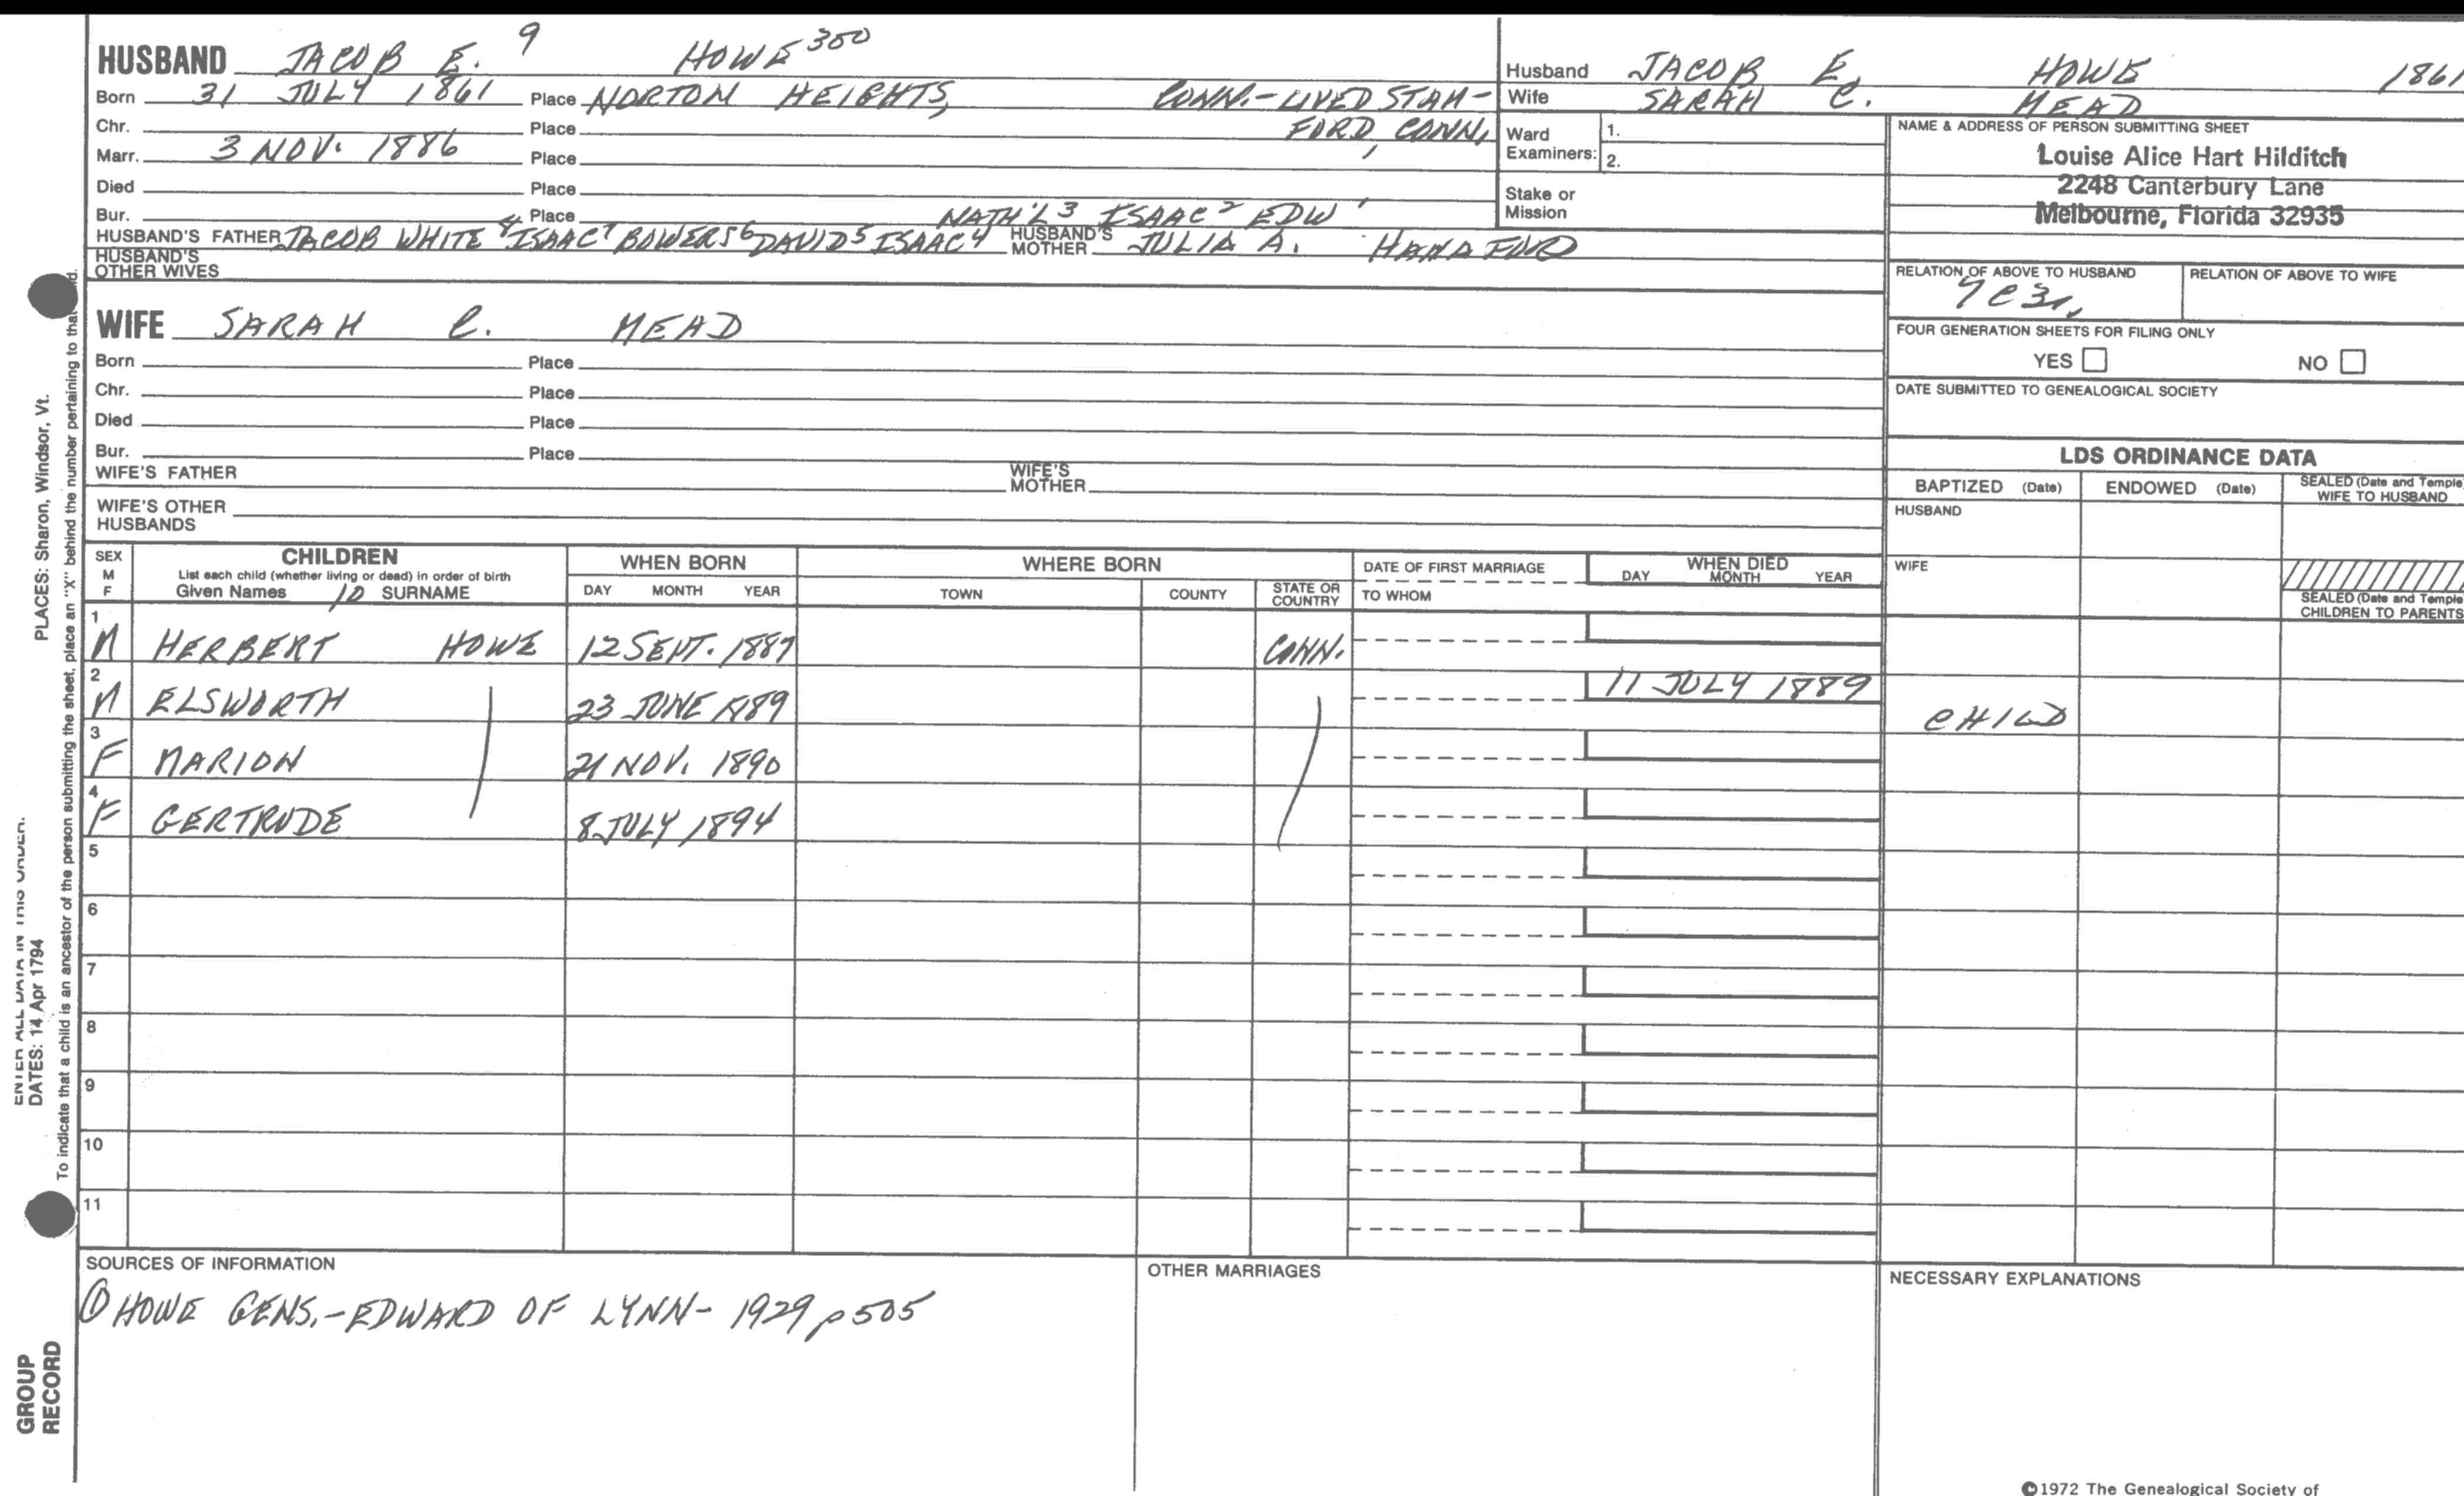 HUSBAND JACOB E. 9 HOWE 350
Born 31 JULY 1861 Place NORTON HEIGHTS, CONN.-LIVED STAM-
Chr. Place FORD, CONN,
Marr. 3 NOV. 1886 Place
Died Place
Bur. Place NATH'L 3 ISAAC 2 EDW 1
HUSBAND'S FATHER JACOB WHITE ISAAC 7 BOWERS 6 DAVID 5 ISAAC 4 HUSBAND'S MOTHER JULIA A. HANAFORD
HUSBAND'S OTHER WIVES
WIFE SARAH C. MEAD
Born Place
Chr. Place
Died Place
Bur. Place
WIFE'S FATHER WIFE'S MOTHER
WIFE'S OTHER HUSBANDS
Husband JACOB E. HOWE 1861
Wife SARAH C. MEAD
Ward Examiners: 1.
2.
Stake or Mission
NAME & ADDRESS OF PERSON SUBMITTING SHEET
Louise Alice Hart Hilditch
2248 Canterbury Lane
Melbourne, Florida 32935
RELATION OF ABOVE TO HUSBAND RELATION OF ABOVE TO WIFE
7C3r.
FOUR GENERATION SHEETS FOR FILING ONLY
YES NO
DATE SUBMITTED TO GENEALOGICAL SOCIETY
LDS ORDINANCE DATA
BAPTIZED (Date) ENDOWED (Date) SEALED (Date and Temple) WIFE TO HUSBAND
HUSBAND
WIFE
SEALED (Date and Temple) CHILDREN TO PARENTS
SEX M F
CHILDREN
List each child (whether living or dead) in order of birth
Given Names 10 SURNAME
WHEN BORN
DAY MONTH YEAR
WHERE BORN
TOWN COUNTY STATE OR COUNTRY
DATE OF FIRST MARRIAGE
TO WHOM
WHEN DIED
DAY MONTH YEAR
1 M HERBERT HOWE 12 SEPT. 1887 CONN.
2 M ELSWORTH 23 JUNE 1889 11 JULY 1889 CHILD
3 F MARION 21 NOV. 1890
4 F GERTRUDE 8 JULY 1894
5
6
7
8
9
10
11
SOURCES OF INFORMATION
① HOWE GENS.-EDWARD OF LYNN- 1929 p505
OTHER MARRIAGES
NECESSARY EXPLANATIONS
©1972 The Genealogical Society of
PLACES: Sharon, Windsor, Vt.
To indicate that a child is an ancestor of the person submitting the sheet, place an "X" behind the number pertaining to that
ENTER ALL DATA IN THIS ORDER:
DATES: 14 Apr 1794
GROUP RECORD